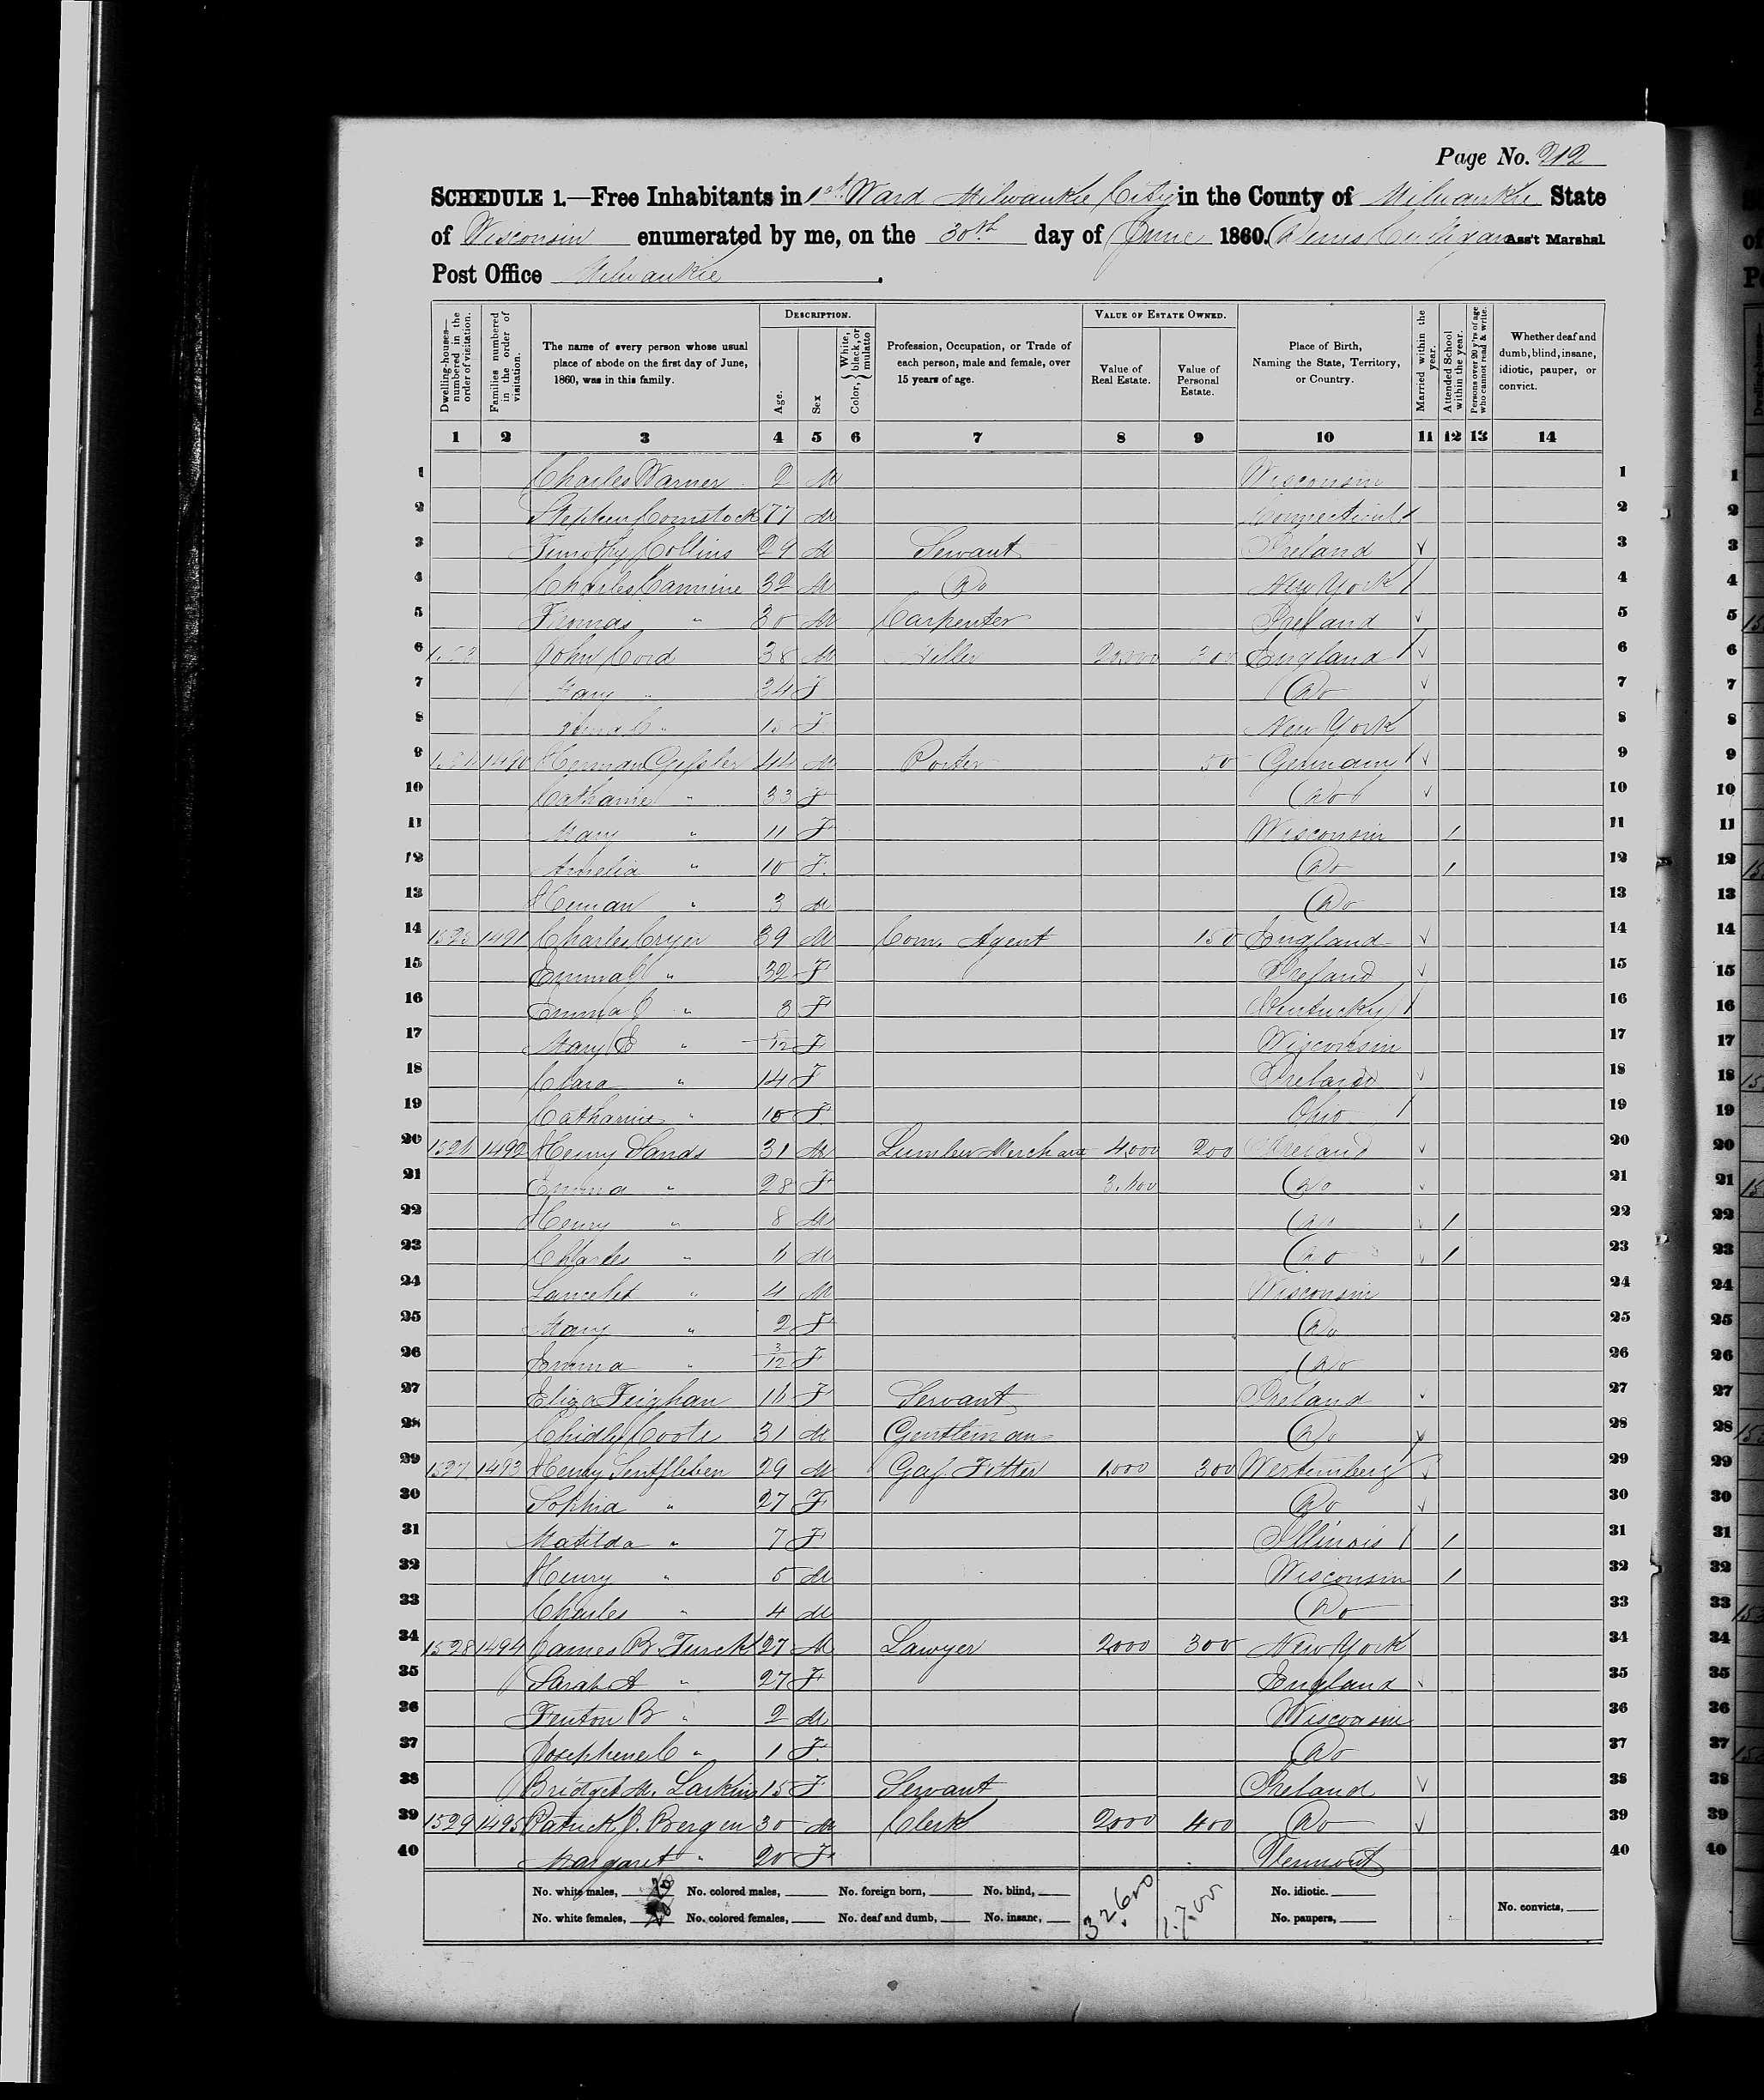 Page No. 212
SCHEDULE 1.—Free Inhabitants in 1st Ward Milwaukie City in the County of Milwaukie State
of Wisconsin enumerated by me, on the 30th day of June 1860. Ass't Marshal
Post Office Milwaukie.
Dwelling-houses—numbered in the order of visitation.
Families numbered in the order of visitation.
The name of every person whose usual place of abode on the first day of June, 1860, was in this family.
DESCRIPTION.
Age.
Sex
Color, { White, black, or mulatto
Profession, Occupation, or Trade of each person, male and female, over 15 years of age.
VALUE OF ESTATE OWNED.
Value of Real Estate.
Value of Personal Estate.
Place of Birth, Naming the State, Territory, or Country.
Married within the year.
Attended School within the year.
Persons over 20 y'rs of age who cannot read & write.
Whether deaf and dumb, blind, insane, idiotic, pauper, or convict.
1 2 3 4 5 6 7 8 9 10 11 12 13 14
1 Charles Warner 2 M Wisconsin 1
2 Stephen Comstock 77 M Connecticut 2
3 Timothy Collins 29 M Servant Ireland 3
4 Charles 32 M Do New York 4
5 Thomas " 30 M Carpenter Ireland 5
6 John Cord 38 M Miller 20,000 300 England 6
7 Mary " 34 F Do 7
8 F New York 8
9 1490 Herman 44 M Porter 50 Germany 9
10 Catharine " 33 F Do 10
11 Mary " 11 F Wisconsin 11
12 Amelia " 10 F Do 12
13 Herman " 3 M Do 13
14 1525 1491 Charles Cryer 39 M Com. Agent 150 England 14
15 Emma C " 32 F Ireland 15
16 Emma " 3 F Kentucky 16
17 Mary E " /12 F Wisconsin 17
18 Clara " 14 F Ireland 18
19 Catharine " 10 F Ohio 19
20 1526 1492 Henry Sands 31 M Lumber Merchant 4,000 200 Ireland 20
21 Emma " 28 F 3,600 Do 21
22 Henry " 8 M Do 22
23 Charles " 6 M Do 23
24 Lancelet " 4 M Wisconsin 24
25 Mary " 2 F Do 25
26 Emma " 3/12 F Do 26
27 Eliza Feighan 16 F Servant Ireland 27
28 Chidly Coote 31 M Gentleman Do 28
29 1527 1493 Henry Senftleben 29 M Gas Fitter 1,000 300 Wertemberg 29
30 Sophia " 27 F Do 30
31 Matilda " 7 F Illinois 31
32 Henry " 5 M Wisconsin 32
33 Charles " 4 M Do 33
34 1528 1494 James B. Turck 27 M Lawyer 2000 300 New York 34
35 Sarah A " 27 F England 35
36 Fenton B " 2 M Wisconsin 36
37 Josephene C " 1 F Do 37
38 Bridget M. Larkins 15 F Servant Ireland 38
39 1529 1495 Patrick J. Bergen 30 M Clerk 2000 400 Do 39
40 Margaret " 20 F Vermont 40
No. white males, 20 No. colored males, No. foreign born, No. blind, No. idiotic.
No. white females, No. colored females, No. deaf and dumb, No. insane, No. paupers,
32600 1.700
No. convicts,